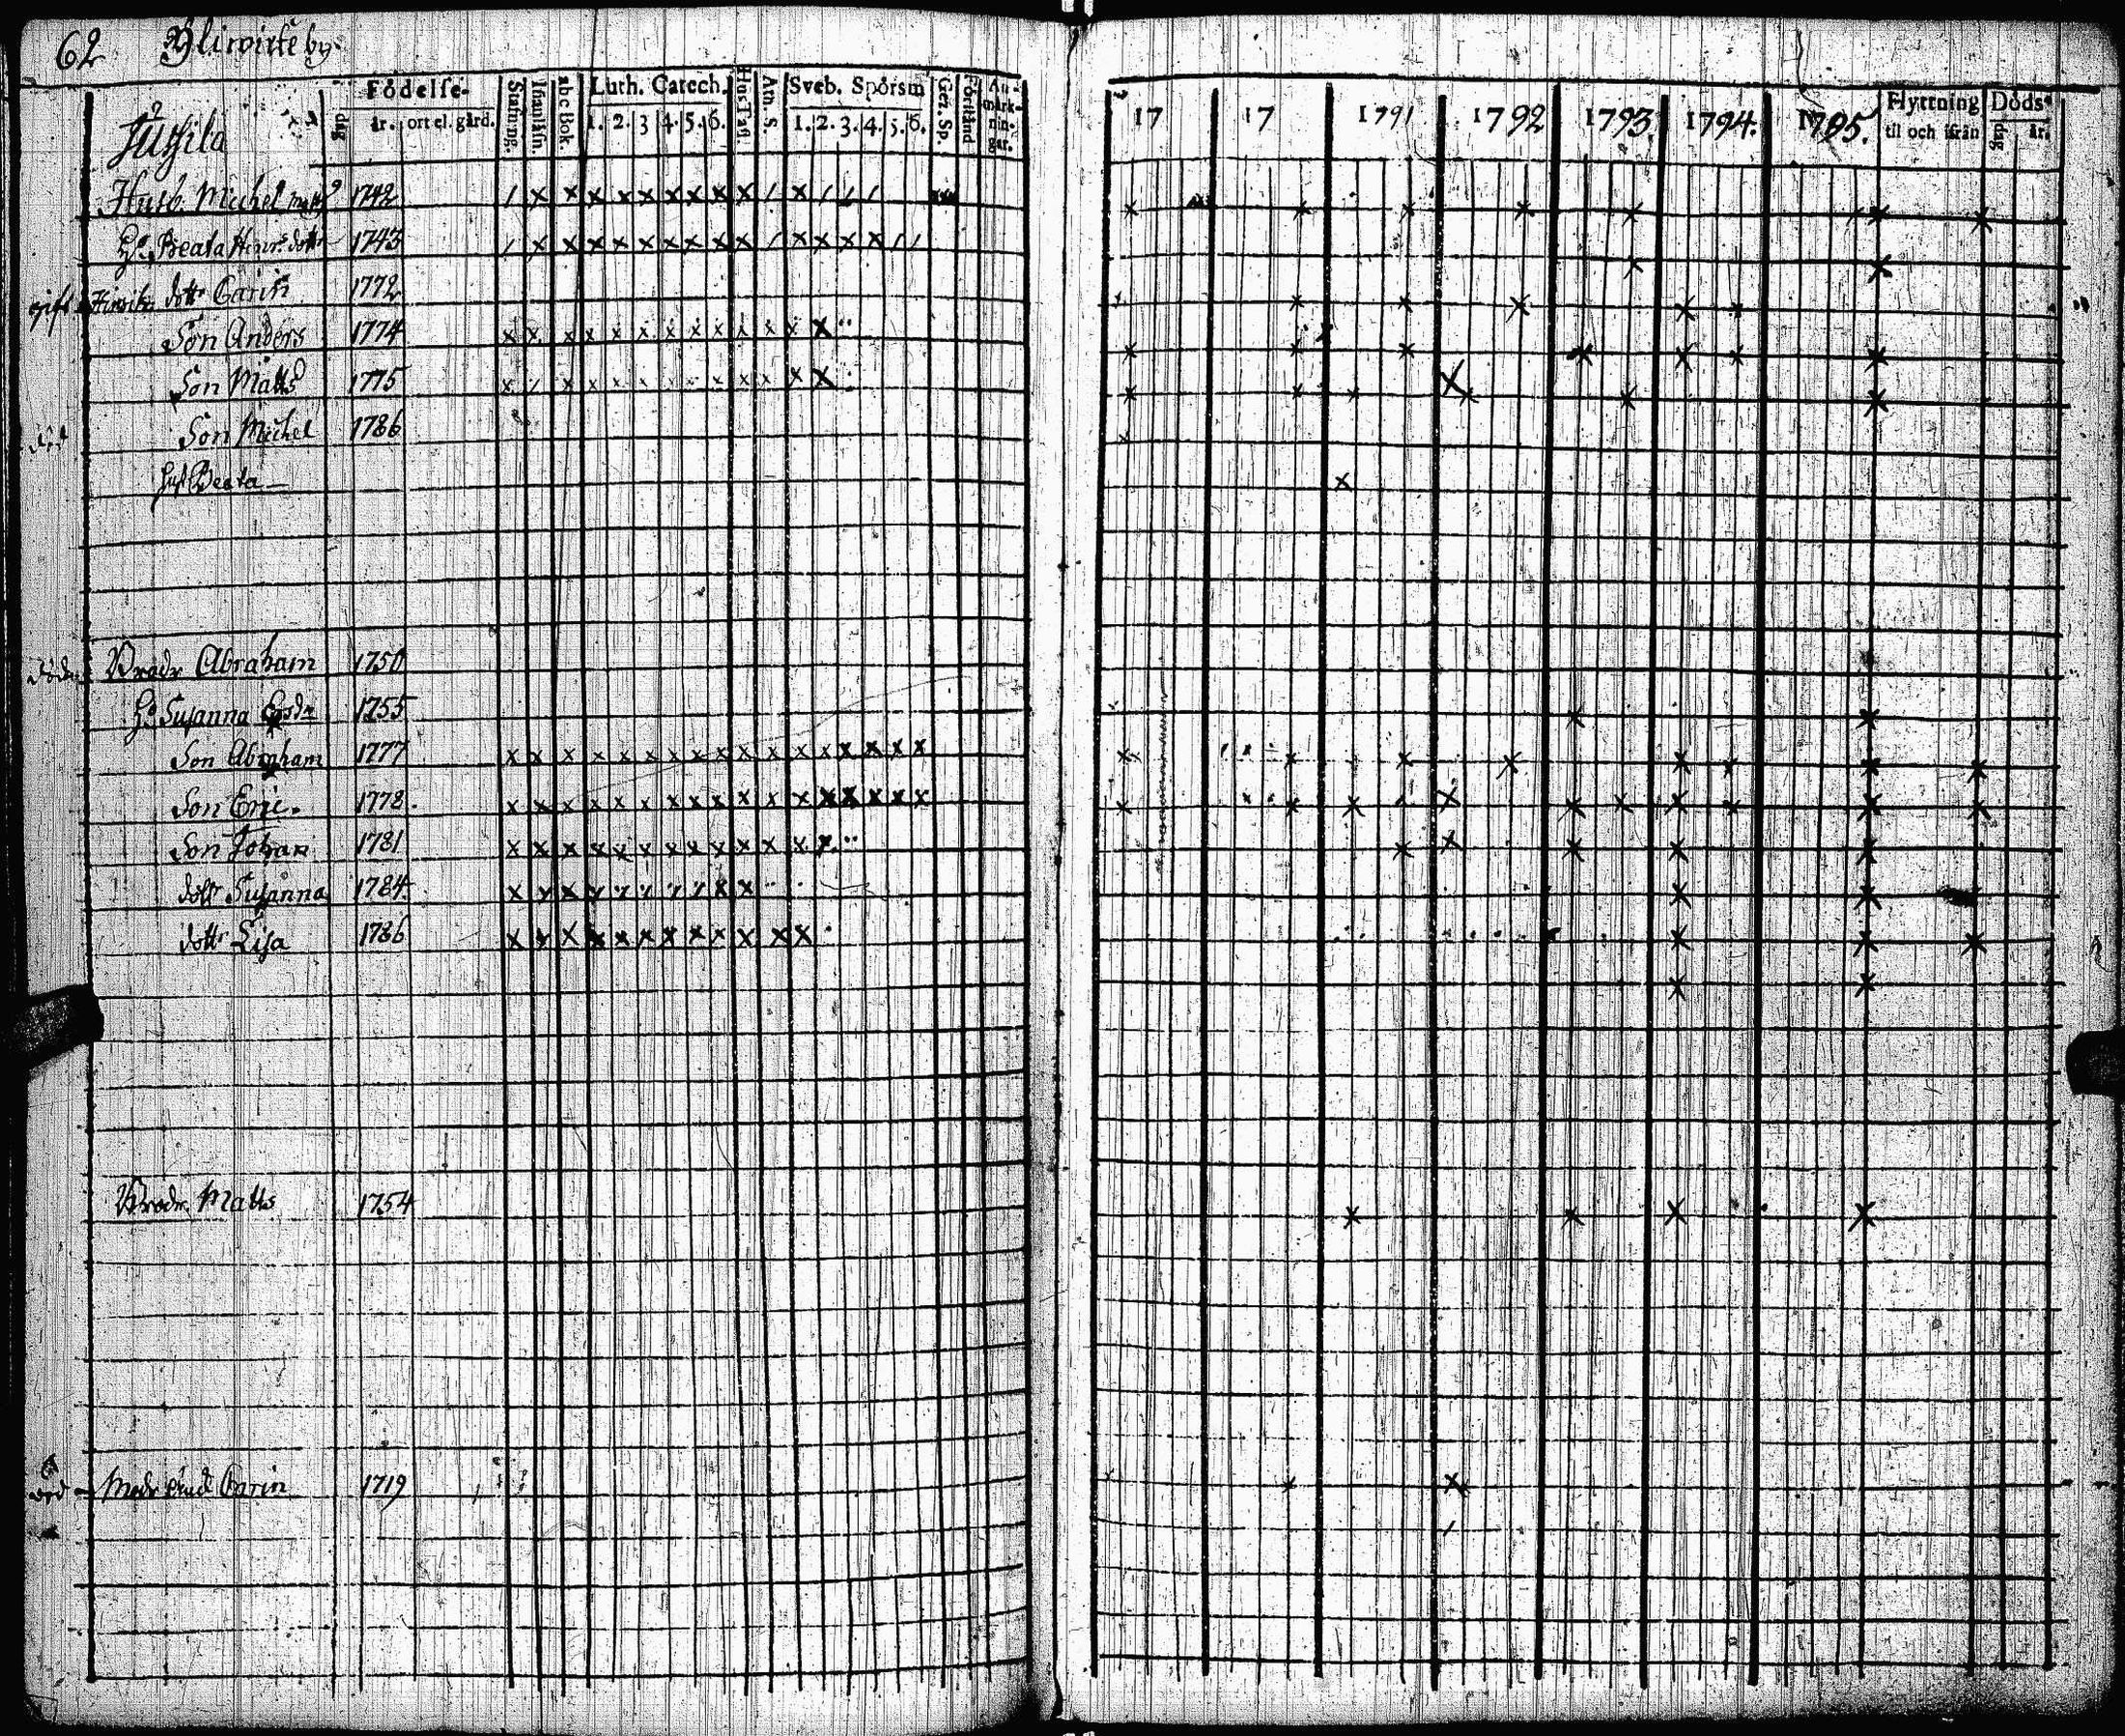 62 Yliwirke by
Födelse-
dag år. ort el. gård.
Stafning. Innanläsn. abc Bok. Luth. Catech. 1. 2. 3 4. 5. 6. Hus Tafl. Ath. S. Sveb. Spörsm 1. 2. 3. 4. 5. 6. Gez. Sp. Förstånd An-märk-nin-gar.
17 17 1791 1792 1793. 1794. 1795. Flyttning til och ifrån Döds- dag år.
Husb. Michel 1742
Hu Beata Henrsdottr 1743
gift dottr Carin 1772
Son Anders 1774
Son Matts 1775
Son Michel 1786
Beata
Brodr Abraham 1750
Hu Susanna 1755
Son Abraham 1777
Son Eric. 1778.
Son Johan 1781
dottr Susanna 1784.
dottr Lisa 1786
Brodr. Matts 1754
död Modr Carin 1719